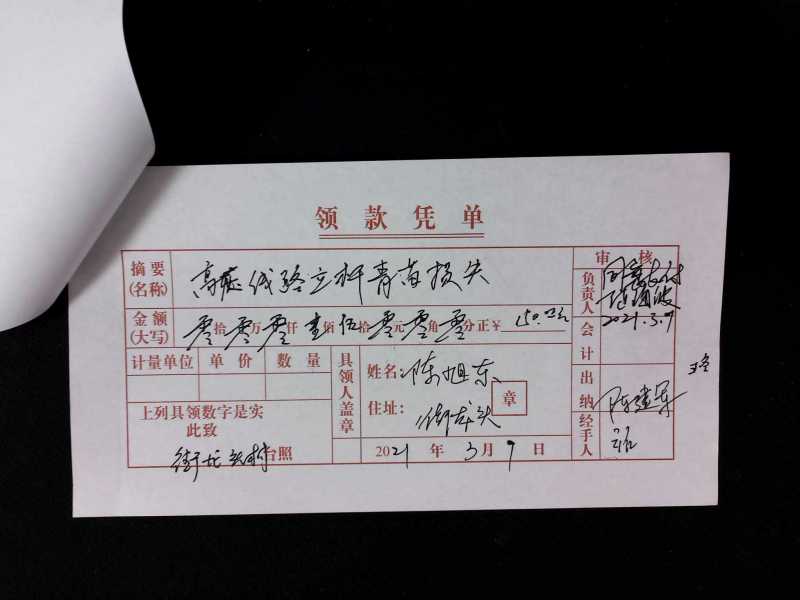 领款凭单
摘要(名称) 高压线路立杆青苗损失
审核
金额(大写) 零拾零万零仟壹佰伍拾零元零角零分正¥ 150.00元
负责人 同意支付
2021.3.9
会计
计量单位 单价 数量
具领人盖章
姓名: 陈旭东
住址: 街龙头
章
出纳 陈建军
上列具领数字是实
此致
街龙头村台照
2021年3月9日
经手人